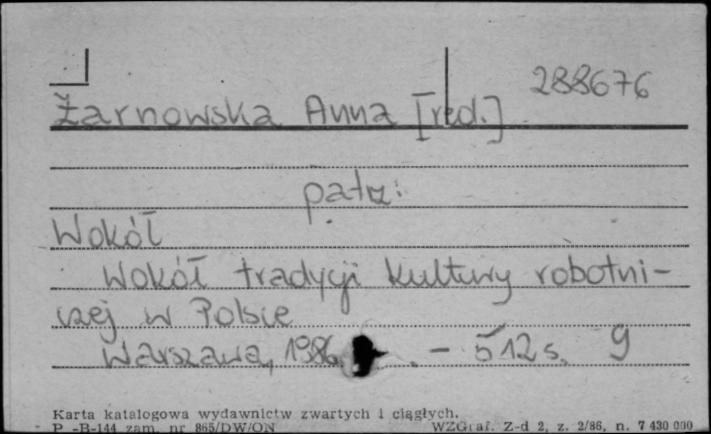 288676
Żarnowska Anna [red.]
patrz:
Wokół
Wokół tradycji kultury robotni-
czej w Polsce
Warszawa, 1986. - 512 s. 9
Karta katalogowa wydawnictw zwartych i ciągłych.
P -B-144 zam. nr 865/DW/ON WZGraf. Z-d 2, z. 2/86, n. 7 430 000